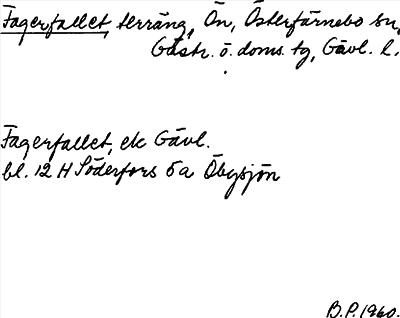 Fagerfallet, terräng, Ön, Österfärnebo sn,
Gästr. ö. doms. tg, Gävl. l.
Fagerfallet, ek Gävl.
bl. 12 H Söderfors 5 a Öbysjön
B.P. 1960.